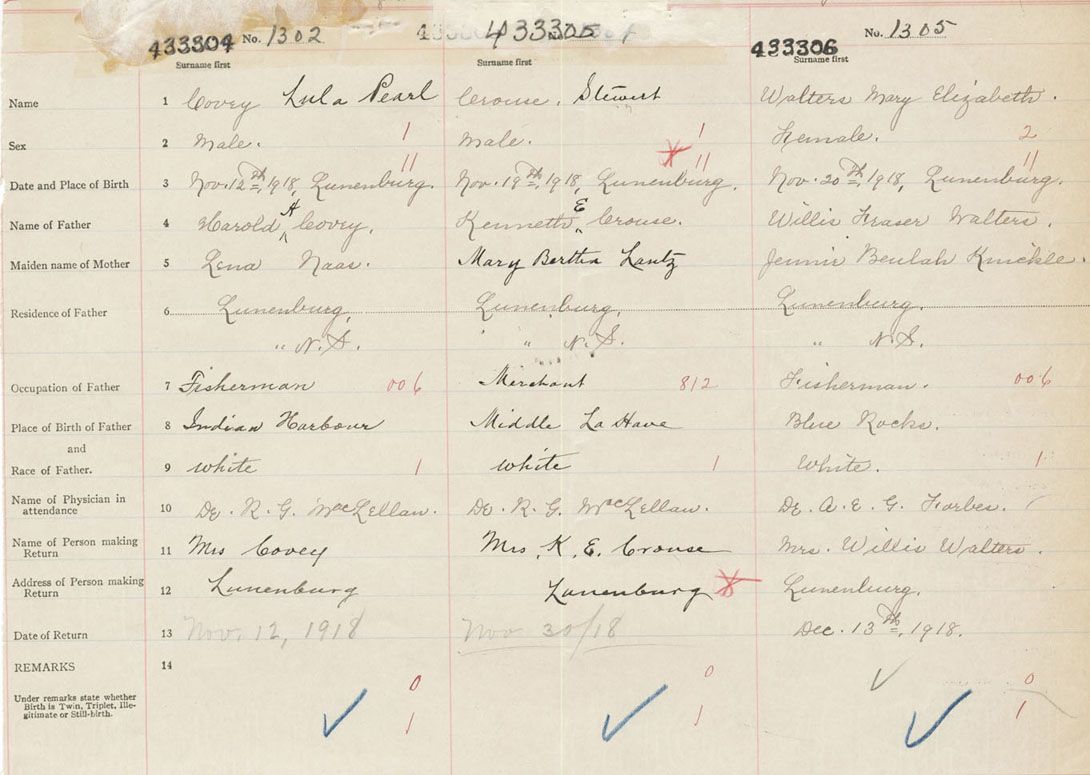 433304 No. 1302 433305 433306 No. 1305
Surname first Surname first Surname first
Name 1 Covey Lula Pearl Crouse, Stewart Walters Mary Elizabeth.
Sex 2 Male. 1 Male. 1 Female. 2
11 X 11 11
Date and Place of Birth 3 Nov. 12th, 1918, Lunenburg. Nov. 19th, 1918, Lunenburg. Nov. 20th, 1918, Lunenburg.
Name of Father 4 Harold A Covey. Kenneth E Crouse. Willis Fraser Walters.
Maiden name of Mother 5 Lena Naas. Mary Bertha Lantz Jennie Beulah Knickle.
Residence of Father 6 Lunenburg, Lunenburg, Lunenburg,
" N.S. " N.S. " N.S.
Occupation of Father 7 Fisherman 006 Merchant 812 Fisherman. 006
Place of Birth of Father 8 Indian Harbour Middle La Have Blue Rocks.
and
Race of Father. 9 white 1 white 1 White. 1
Name of Physician in
attendance 10 Dr. R. G. MacLellan. Dr. R. G. MacLellan. Dr. A. E. G. Forbes.
Name of Person making
Return 11 Mrs Covey Mrs. K. E. Crouse Mrs. Willis Walters.
Address of Person making
Return 12 Lunenburg Lunenburg X Lunenburg.
Date of Return 13 Nov. 12, 1918 Nov 30/18 Dec. 13th, 1918.
REMARKS 14
0 0 0
Under remarks state whether
Birth is Twin, Triplet, Ille-
gitimate or Still-birth.
1 1 1